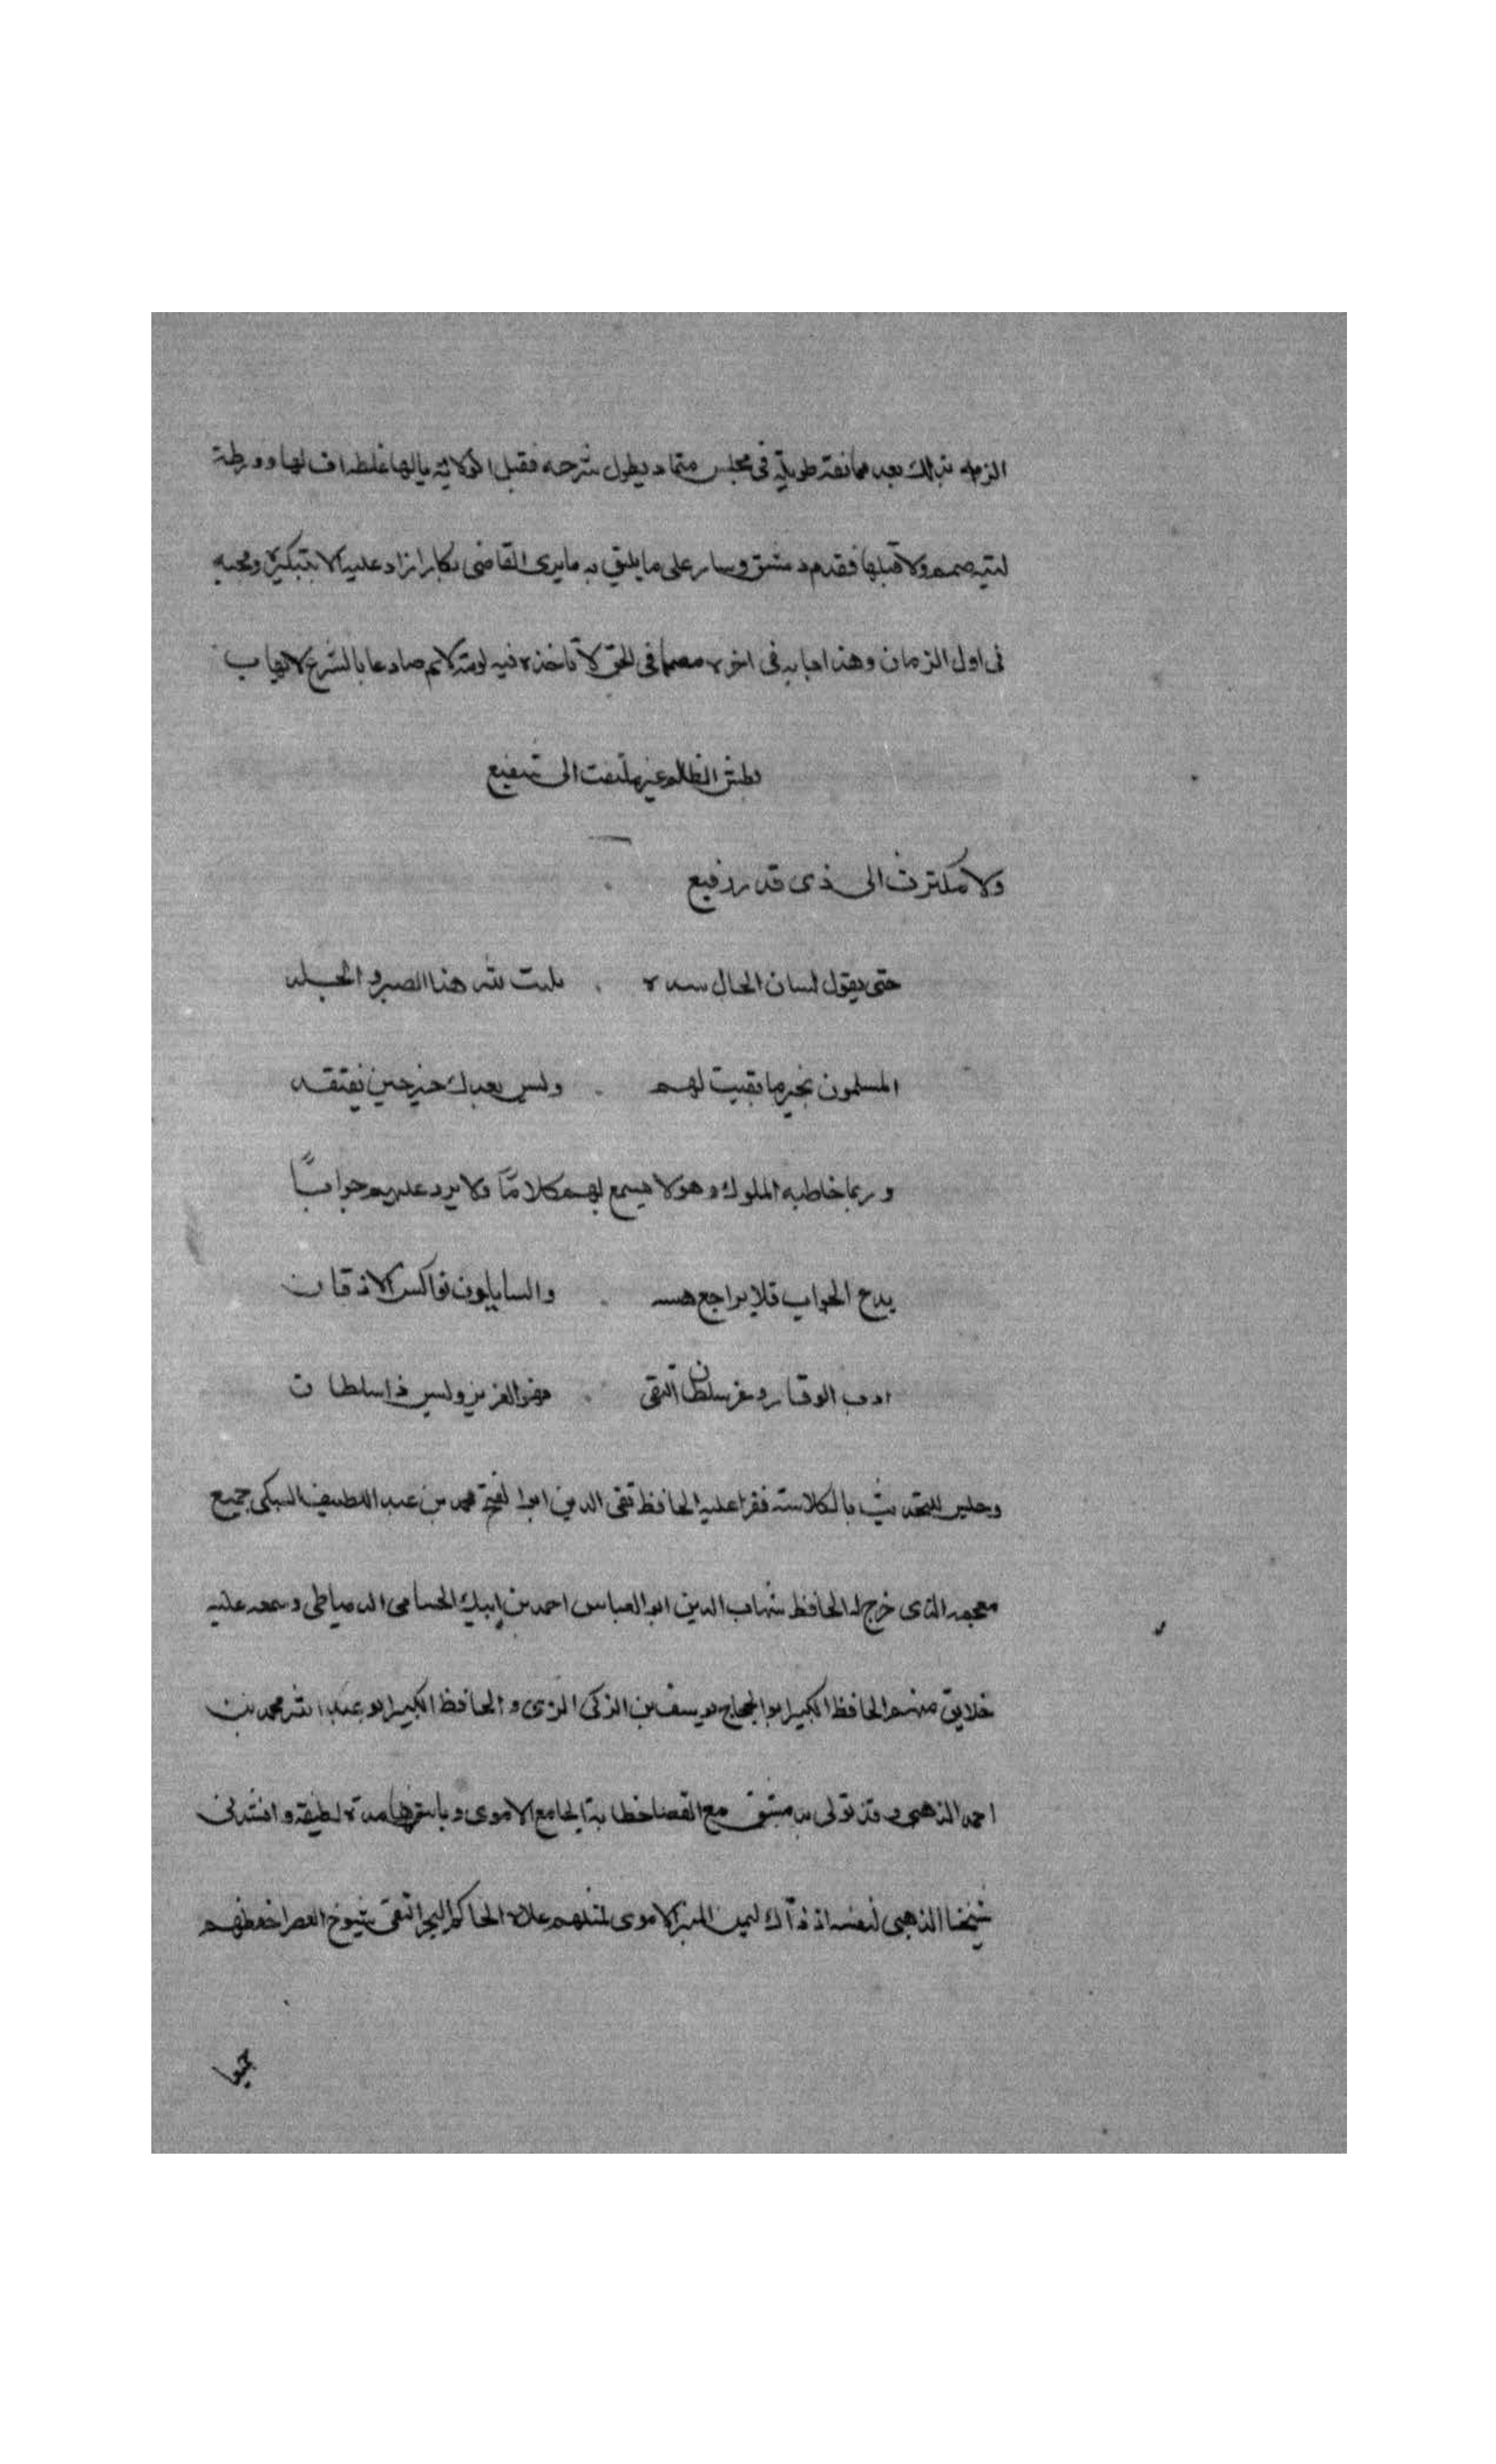 الزمه بذلك بعد ممانعة طويلة في مجلس متماد يطول شرحه فقبل الولاية يالها غلطة اف لها وورطة
ليته صمم ولا قبلها فقدم دمشق وسار على ما يليق به ما يرى القاضي بكار ازاد عليه الا بتبكيره ومجيه
في اول الزمان وهذا جا به في اخره مصمما في الحق لا تاخذه فيه لومة لايم صادعا بالشرع لا يهاب
بطش الظلم غير ملتفت الى شفيع
ولا مكترث الى ذي قدر رفيع
حتى يقول لسان الحال ينشده . لله هذا الصبر والجلد
المسلمون بخير ما بقيت لهم . وليس بعدك خير حين تفتقد
وربما خاطبه الملوك وهو لا يسمع لهم كلاما ولا يرد عليهم جوابا
يدع الجواب فلا يراجع هيبه . والسايلون نواكس الاذقان
ادب الوقار وعز سلطان التقى . فهو العزيز وليس ذا سلطان
وجلس للتحديث بالكلاسة فقرا عليه الحافظ تقي الدين ابوا لفتح محمد بن عبد اللطيف السبكي جميع
معجمه الذي خرج له الحافظ شهاب الدين ابو العباس احمد بن ايبك الحسامي الدمياطي وسمعه عليه
خلايق منهم الحافظ الكبير ابو الحجاج يوسف بن الزكي المزي والحافظ الكبير ابو عبد الله محمد بن
احمد الذهبي وقد تولى بدمشق مع القضا خطابة الجامع الاموي وباشرها مدة لطيفة وانشدني
شيخنا الذهبي لنفسه اذ ذاك ليهن المنبر الاموي لما علاه الحاكم البحر التقي شيوخ العصر احفظهم
جميعا